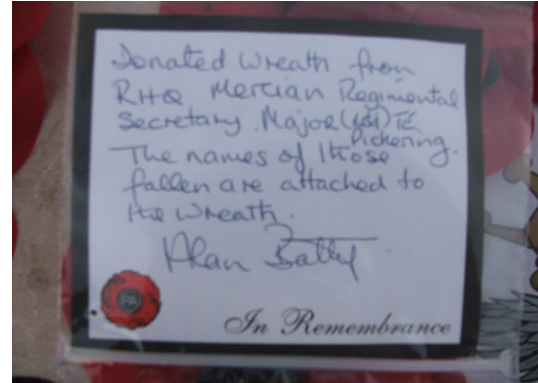 Donated Wreath from
RHQ Mercian Regimental
Secretary. Major (retd) TE
Pickering.
The names of those
fallen are attached to
the wreath.
Alan
PA
In Remembrance